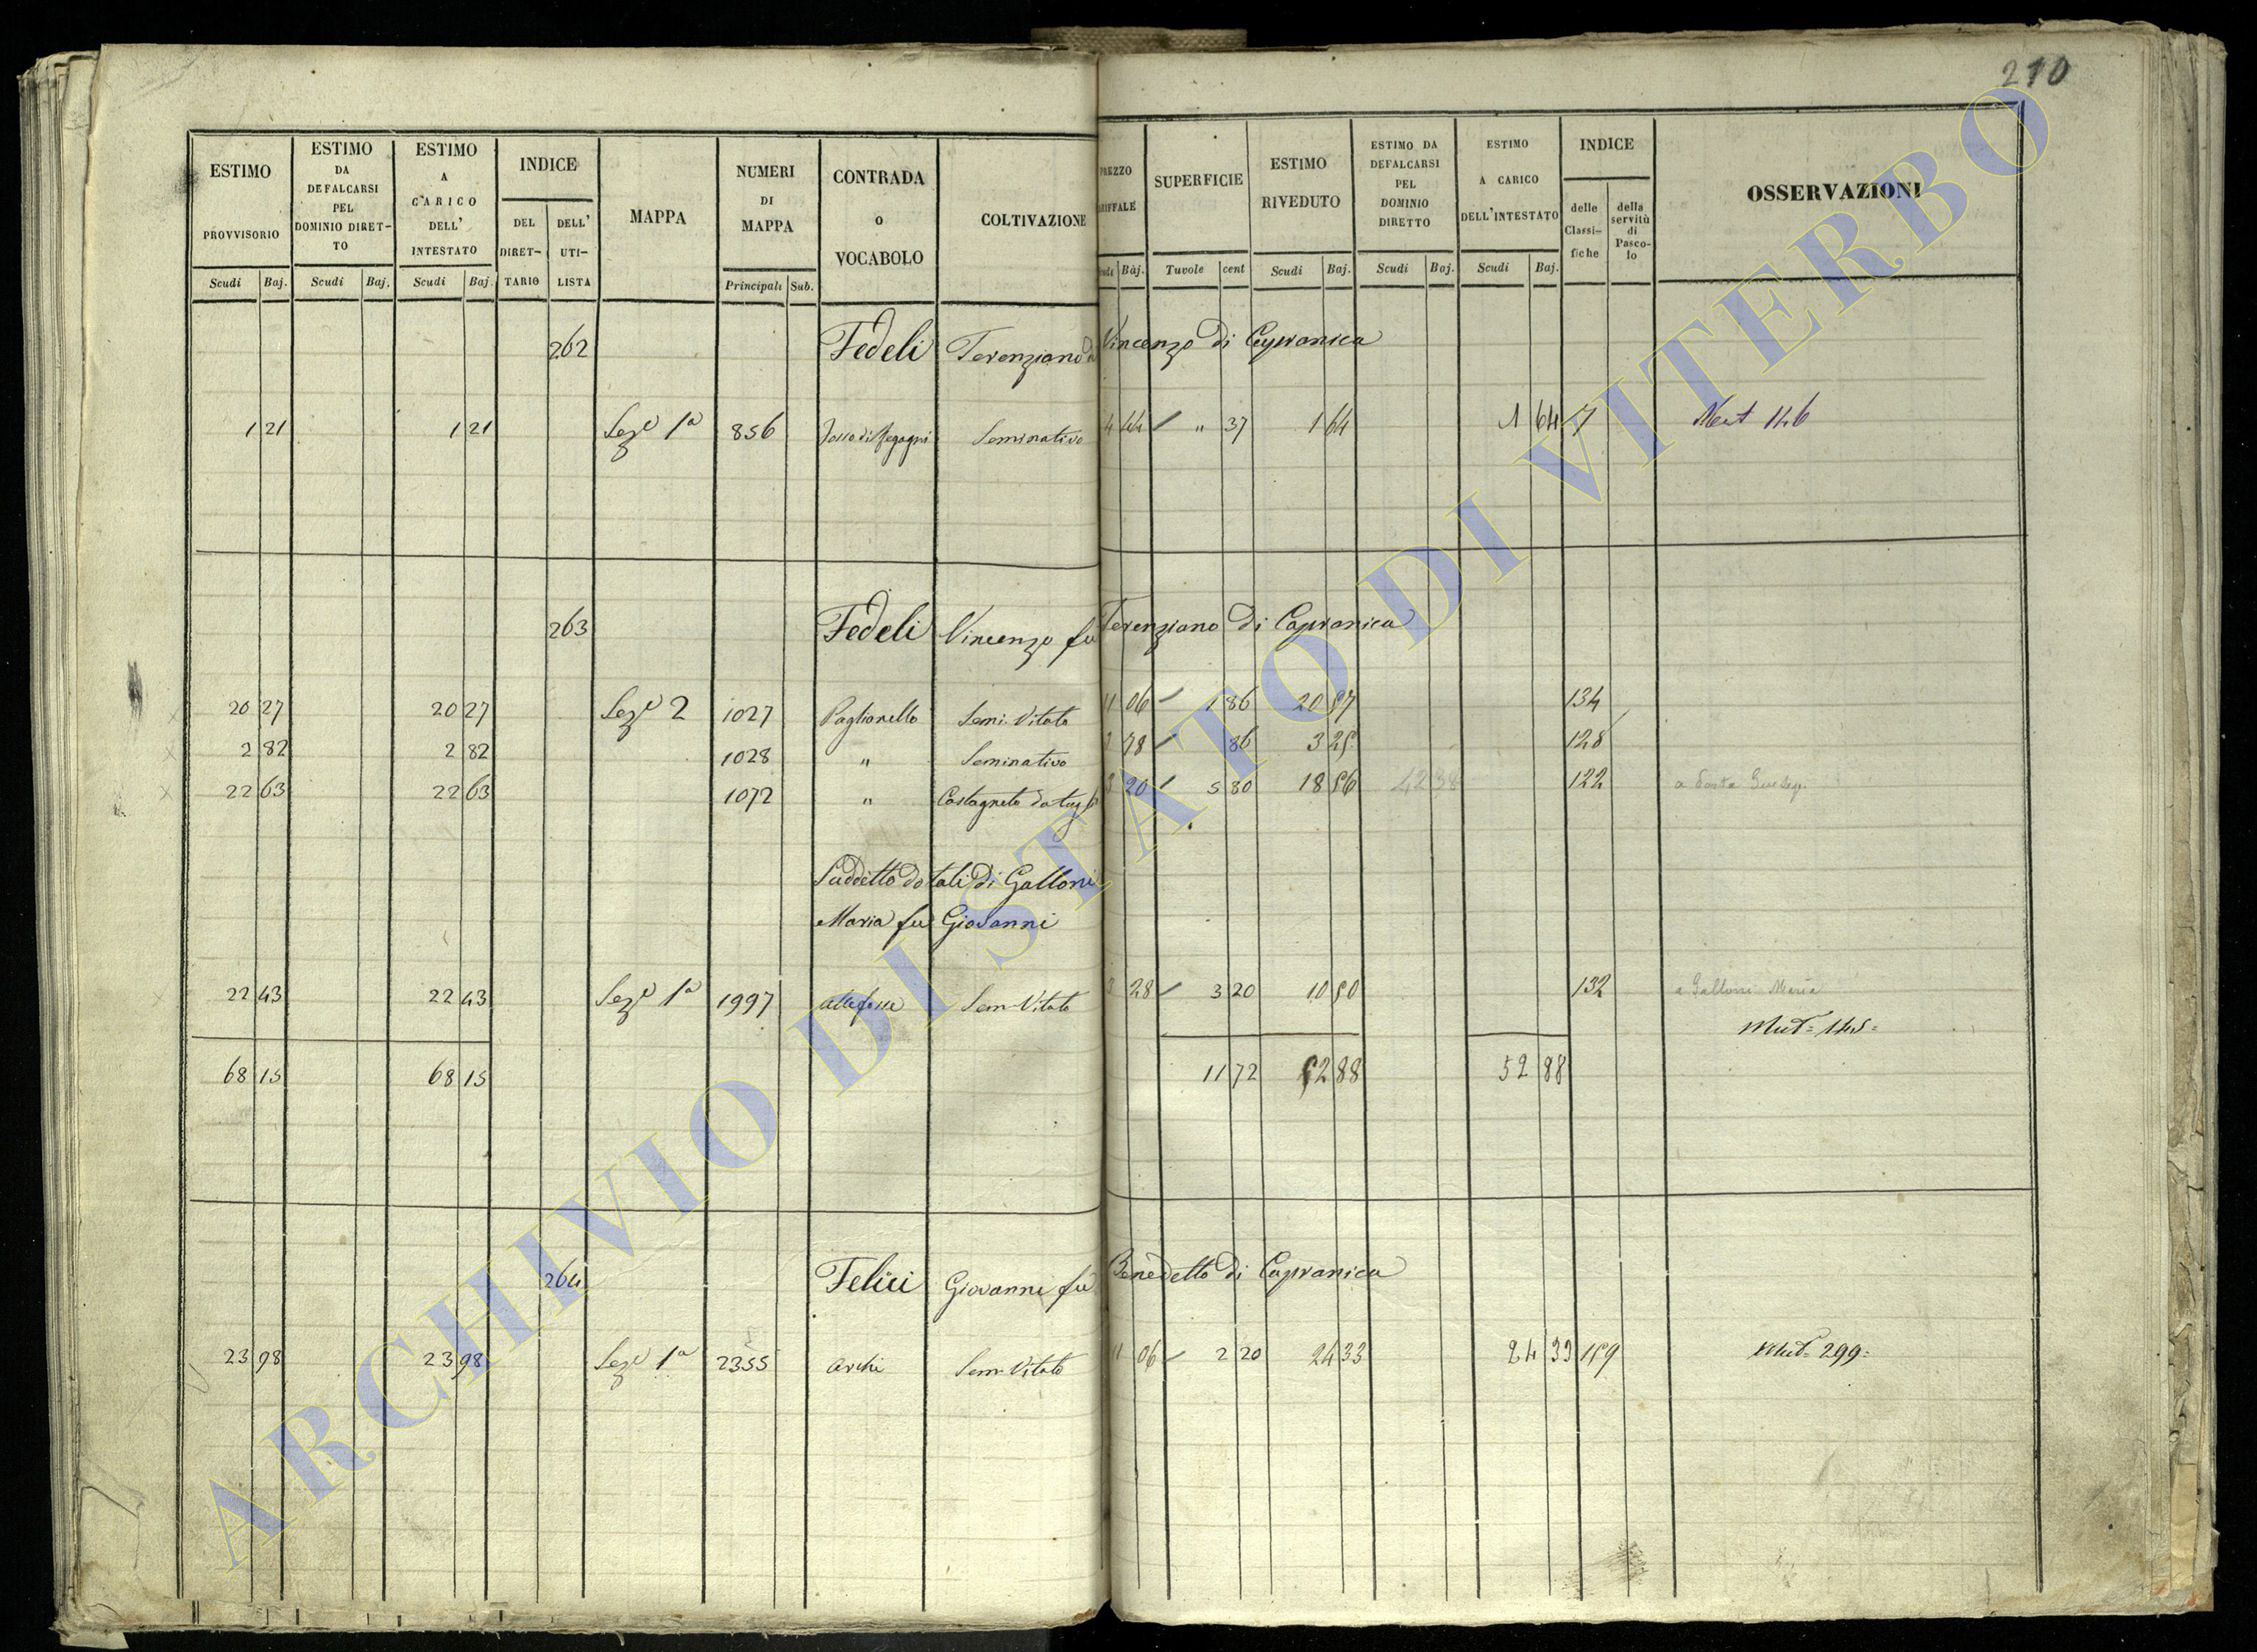 210
ESTIMO PROVVISORIO Scudi Baj.
ESTIMO DA DEFALCARSI PEL DOMINIO DIRETTO Scudi Baj.
ESTIMO A CARICO DELL' INTESTATO Scudi Baj.
INDICE DEL DIRETTARIO DELL' UTILISTA
MAPPA
NUMERI DI MAPPA Principali Sub.
CONTRADA o VOCABOLO
COLTIVAZIONE
Baj.
SUPERFICIE Tavole cent
ESTIMO RIVEDUTO Scudi Baj.
ESTIMO DA DEFALCARSI PEL DOMINIO DIRETTO Scudi Baj.
ESTIMO A CARICO DELL'INTESTATO Scudi Baj.
INDICE delle Classifiche della servitù di Pascolo
OSSERVAZIONI
262 Fedeli Terenziano di Vincenzo di Capranica
1 21 1 21 Sez.e 1a 856 Seminativo 4 44 " 37 1 64 1 64 7 146
263 Fedeli Vincenzo fu Terenziano di Capranica
20 27 20 27 Sez.e 2 1027 Paglionello Semi-Vitato 11 06 1 86 20 57 134
2 82 2 82 1028 " Seminativo 3 78 86 3 25 128
22 63 22 63 1072 " Castagneto da 3 20 5 80 18 56 122
Suddetto dotali di Galloni
Maria fu Giovanni
22 43 22 43 Sez.e 1a 1997 Sem-Vitato 3 28 3 20 10 50 132 a Galloni Maria
Mut= 145=
68 15 68 15 11 72 52 88 52 88
264 Felici Giovanni fu Benedetto di Capranica
23 98 23 98 Sez.e 1a 2355 Archi Sem-Vitato 11 06 2 20 24 33 24 33 159 Mut= 299=
ARCHIVIO DI STATO DI VITERBO